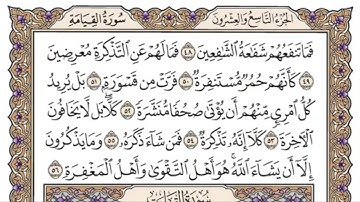 الجزء التاسع والعشرون سورة القيامة
فما تنفعهم شفعة الشفعين ٤٨ فما لهم عن التذكرة معرضين
٤٩ كأنهم حمر مستنفرة ٥٠ فرت من قسورة ٥١ بل يريد
كل امرئ منهم أن يؤتى صحفا منشرة ٥٢ كلا بل لا يخافون
الآخرة ٥٣ كلا إنه تذكرة ٥٤ فمن شاء ذكره ٥٥ وما يذكرون
إلا أن يشاء الله هو أهل التقوى وأهل المغفرة ٥٦